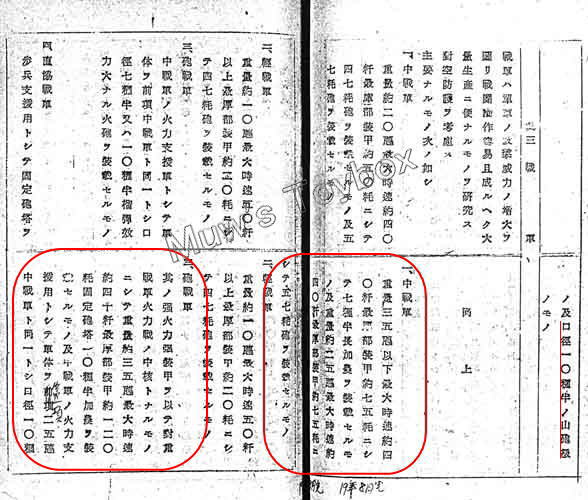 其三 戰車
戰車ハ單車ノ攻擊威力ノ增大ヲ
圖リ戰鬪操作容易且成ルヘク大
量生產ニ便ナルモノヲ硏究ス
對空防護ヲ考慮ス
主要ナルモノ次ノ如シ
一、中戰車
重量約二〇瓲最大時速約四〇
粁最厚部裝甲約五〇粍ニシテ
四七粍砲ヲ裝載セルモノ及五
七粍砲ヲ裝載セルモノ
二、輕戰車
重量約一〇瓲最大時速五〇粁
以上最厚部裝甲約二〇粍ニシ
テ四七粍砲ヲ裝載セルモノ
三、砲戰車
中戰車ノ火力支援車トシテ車
體ヲ前項中戰車ト同一トシ口
徑七糎半又ハ一〇糎榴彈效
力大ナル火砲ヲ裝載セルモノ
四、直協戰車
步兵支援用トシテ固定砲塔ヲ
ノ及口徑一〇糎半ノ山砲級
ノモノ
同上
一、中戰車
重量三五瓲以下最大時速約四
〇粁最厚部裝甲約七五粍ニシ
テ七糎半長加農ヲ裝載セルモ
ノ及重量約二五瓲最大時速約
四〇粁最厚部裝甲約七五粍ニ
シテ五七粍砲ヲ裝載セルモノ
二、輕戰車
重量約一〇瓲最大時速約五〇粁
以上最厚部裝甲約二〇粍ニシ
テ四七粍砲ヲ裝載セルモノ
三、砲戰車
其ノ强火力强裝甲ヲ以テ對重
戰車火力戰ノ中核トナルモノ
ニシテ重量約三五瓲最大時速
約四十粁最厚部裝甲約一二〇
粍固定砲塔一〇糎半加農ヲ裝
載セルモノ及中戰車ノ火力支
援用トシテ車體ヲ前項二五瓲
中戰車ト同一トシ口徑一〇糎
19年8月完
Muw's Toybox